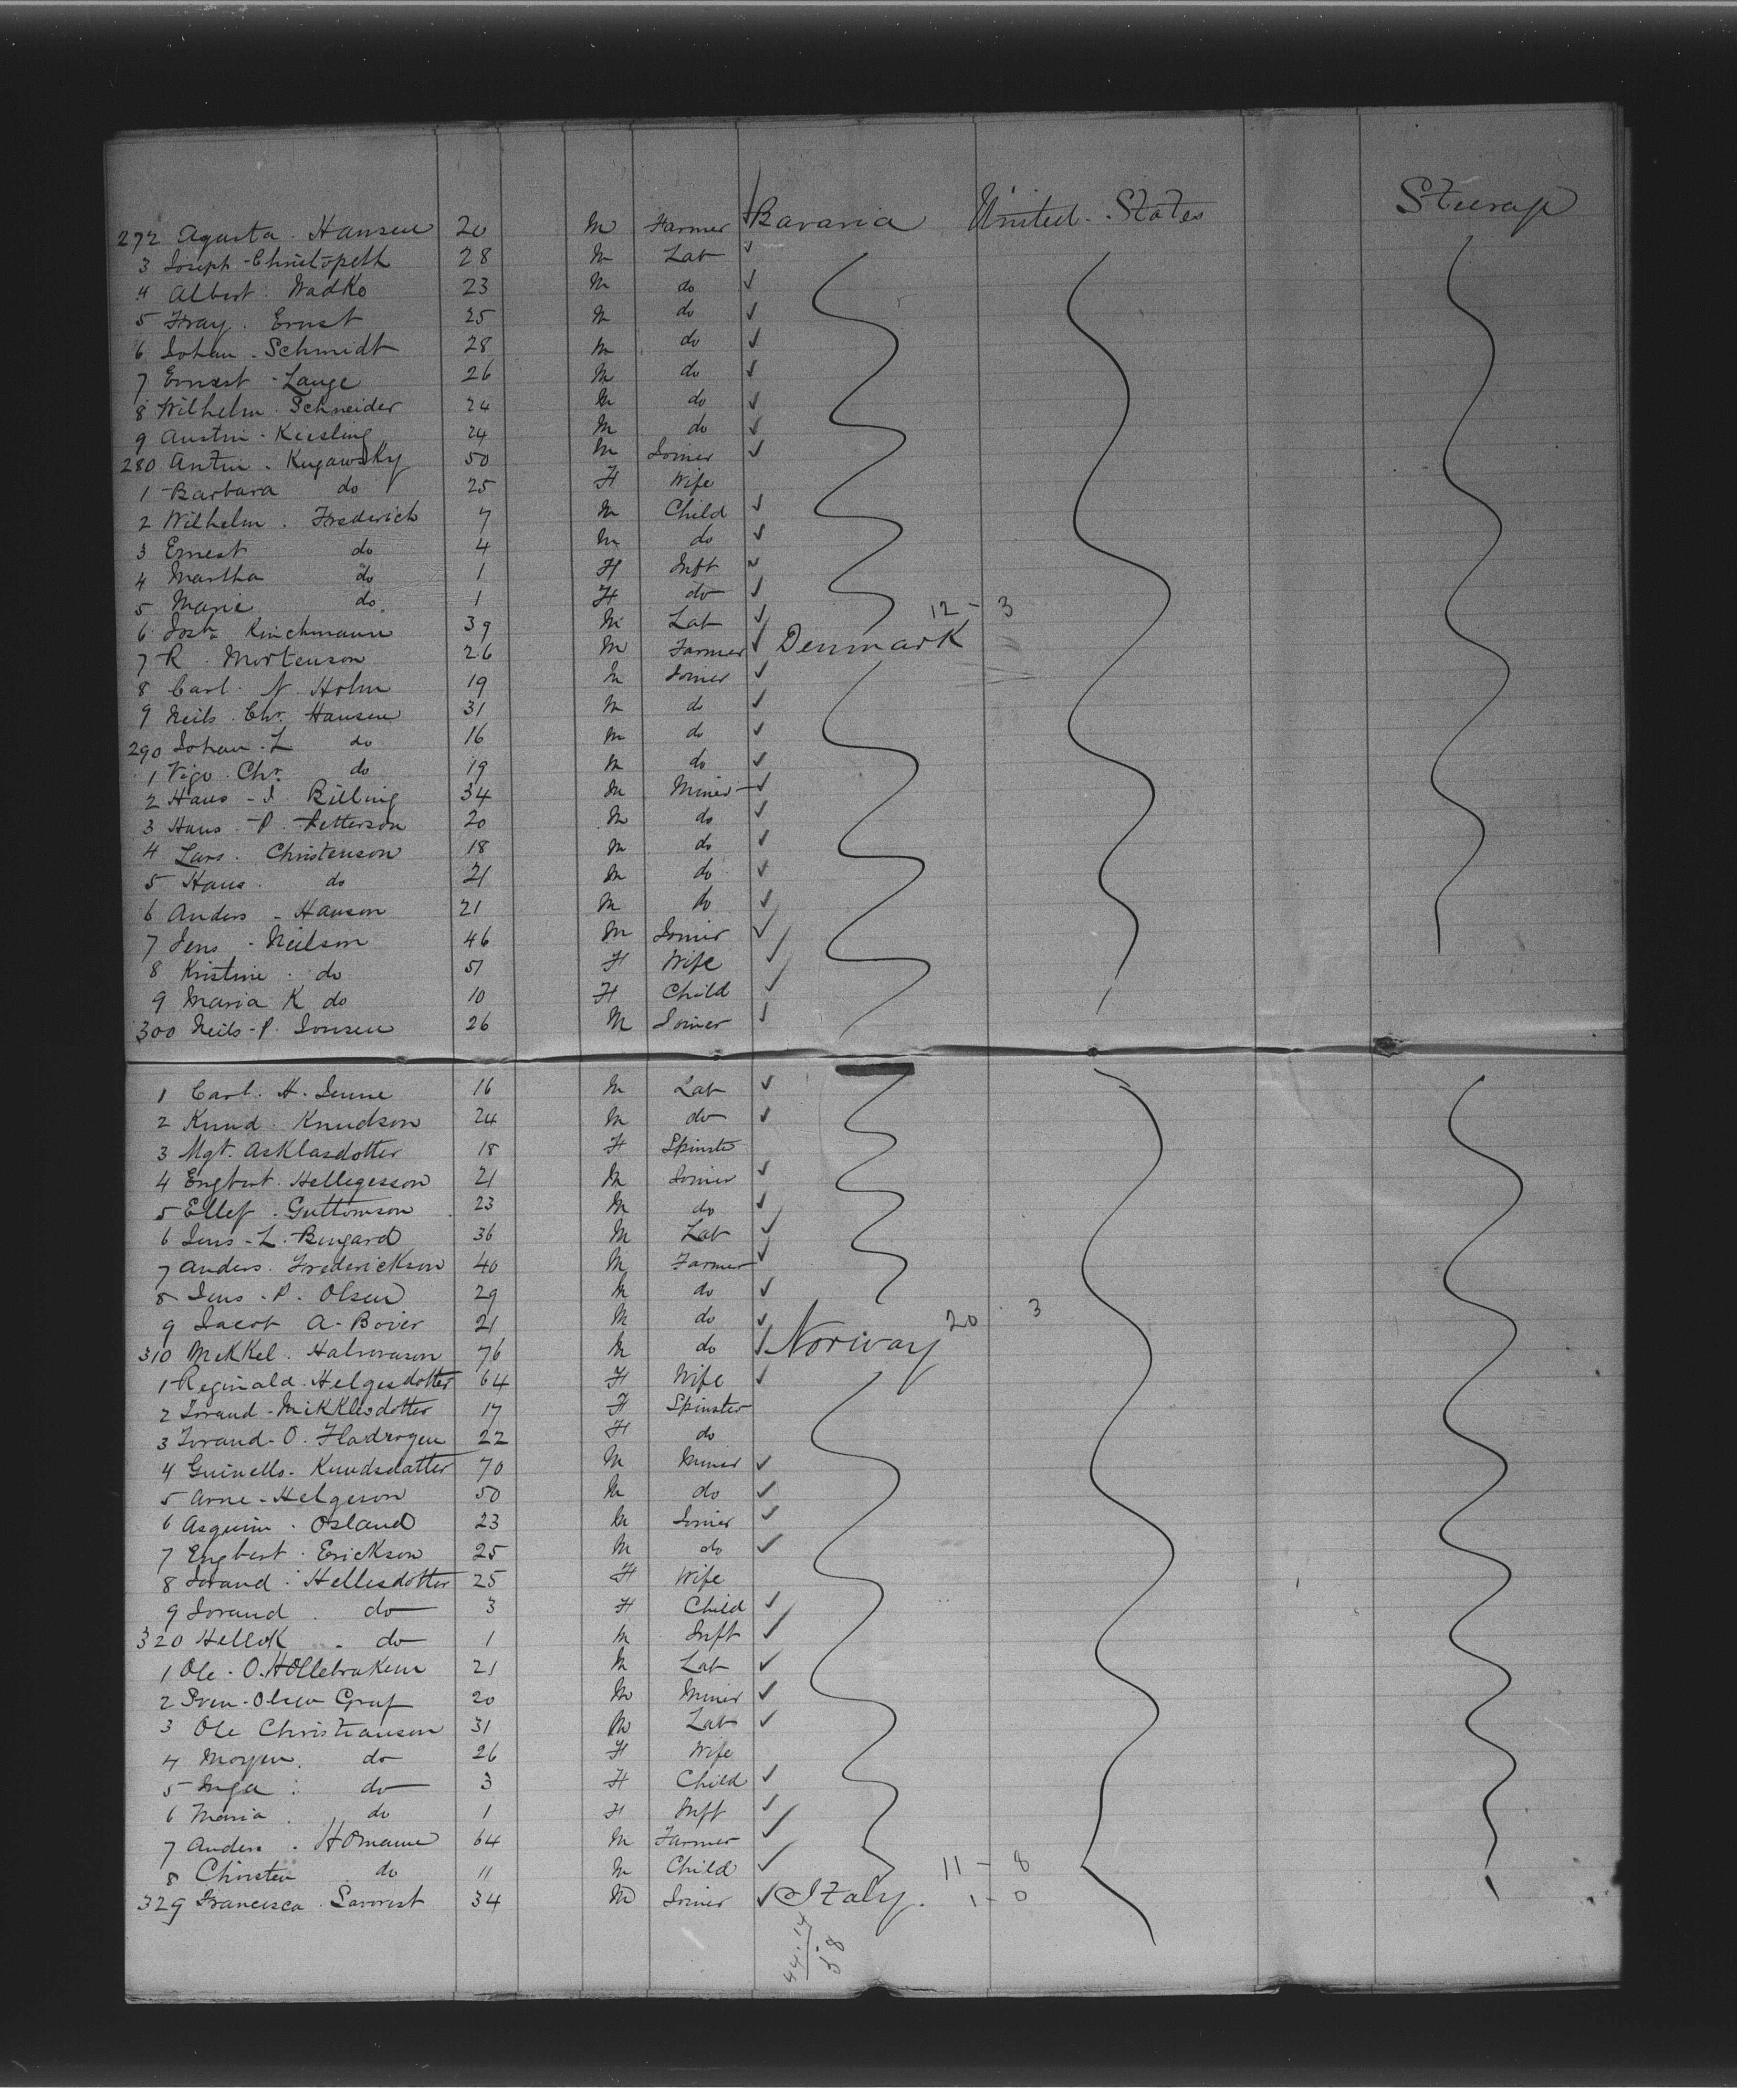 272 Agusta. Hansen 20 M Farmer ✓ Bavaria United. States Steerage
3 Joseph - Christopeth 28 M Lab ✓
4 Albert. Wadko 23 M do ✓
5 Fray. Ernst 25 M do ✓
6 Johan - Schmidt 28 M do ✓
7 Ernest - Lange 26 M do ✓
8 Wilhelm. Schneider 24 M do ✓
9 Austin - Kiesling 24 M do ✓
280 Anton. Kugawsky 50 M Joiner ✓
1 Barbara do 25 F Wife
2 Wilhelm. Frederich 7 M Child ✓
3 Ernest do 4 M do ✓
4 Martha do 1 F Inft ✓
5 Marie do 1 F do ✓ 12 - 3
6 Josh Kinchmann 39 M Lab ✓
7 R. Mortenson 26 M Farmer ✓ Denmark
8 Carl. N. Holm 19 M Joiner ✓
9 Neils. Chr. Hansen 31 M do ✓
290 Johan - L do 16 M do ✓
1 Vigo. Chr. do 19 M do ✓
2 Hans - J. Billing 34 M Miner ✓
3 Hans - P. Petterson 20 M do ✓
4 Lars. Christenson 18 M do ✓
5 Hans. do 21 M do ✓
6 Anders - Hanson 21 M do ✓
7 Jens - Neilson 46 M Joiner ✓
8 Kristine. do 51 F Wife ✓
9 Maria K do 10 F Child ✓
300 Neils - P. Jonsen 26 M Joiner ✓
1 Carl. H. Jenne 16 M Lab ✓
2 Knud. Knudson 24 M do ✓
3 Mgt. Asklasdotter 18 F Spinster
4 Engbert. Hellegesson 21 M Joiner ✓
5 Ellef. Guttomson 23 M do ✓
6 Jens - L. Bengard 36 M Lab ✓
7 Anders. Frederickson 40 M Farmer ✓
8 Jens - P. Olsen 29 M do ✓
9 Jacob A - Boier 21 M do ✓ 20 3
310 Mekkel. Halvorason 76 M do ✓ Norway
1 Reginald. Helgesdotter 64 F Wife ✓
2 Jorand - Mikklesdotter 17 F Spinster
3 Jorand - O. Fladrogen 22 F do
4 Guinello - Knudsdatter 70 M Miner ✓
5 Arne - Helgeson 50 M do ✓
6 Asquim. Osland 23 M Joiner ✓
7 Engbert. Erickson 25 M do ✓
8 Jorand. Hellesdotter 25 F Wife
9 Jorand. do 3 F Child ✓
320 Hellok - do 1 M Inft ✓
1 Ole - O. Hollebraken 21 M Lab ✓
2 Sven - Olsen Graf 20 M Miner ✓
3 Ole Christianson 31 M Lab ✓
4 Moyen. do 26 F Wife
5 Inga. do 3 F Child ✓
6 Maria. do 1 F Inft ✓
7 Anders. Homanne 64 M Farmer ✓
8 Christen do 11 M Child ✓ 11 - 8
329 Francesca. 34 M Joiner ✓ Italy. 1 - 0
44. 14
58